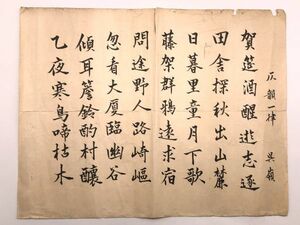 仄韻一律 吳嶺
賀筵酒醒遊志逐
田舍探秋出山麓
日暮里童月下歌
藤架群鴉遠求宿
問途野人路崎嶇
忽看大厦臨幽谷
傾耳簷鈴酌村釀
乙夜寒鳥啼枯木